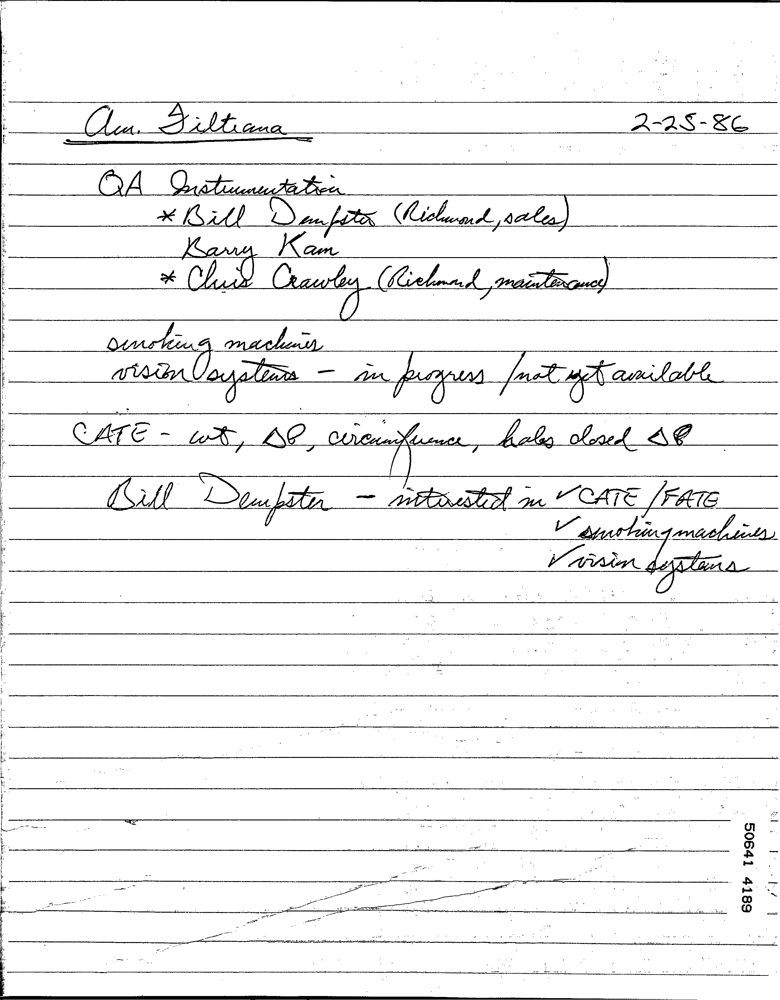 Am. Filtrana 2-25-86
QA Instrumentation
* Bill Dempster (Richmond, sales)
Barry Kam
* Chris Crawley (Richmond, maintenance)
smoking machines
vision systems - in progress / not yet available
CATE - wt, ΔP, circumfuence, holes closed ΔP
Bill Dempster - interested in ✓ CATE / FATE
✓ smoking machines
✓ vision systems
50641 4189